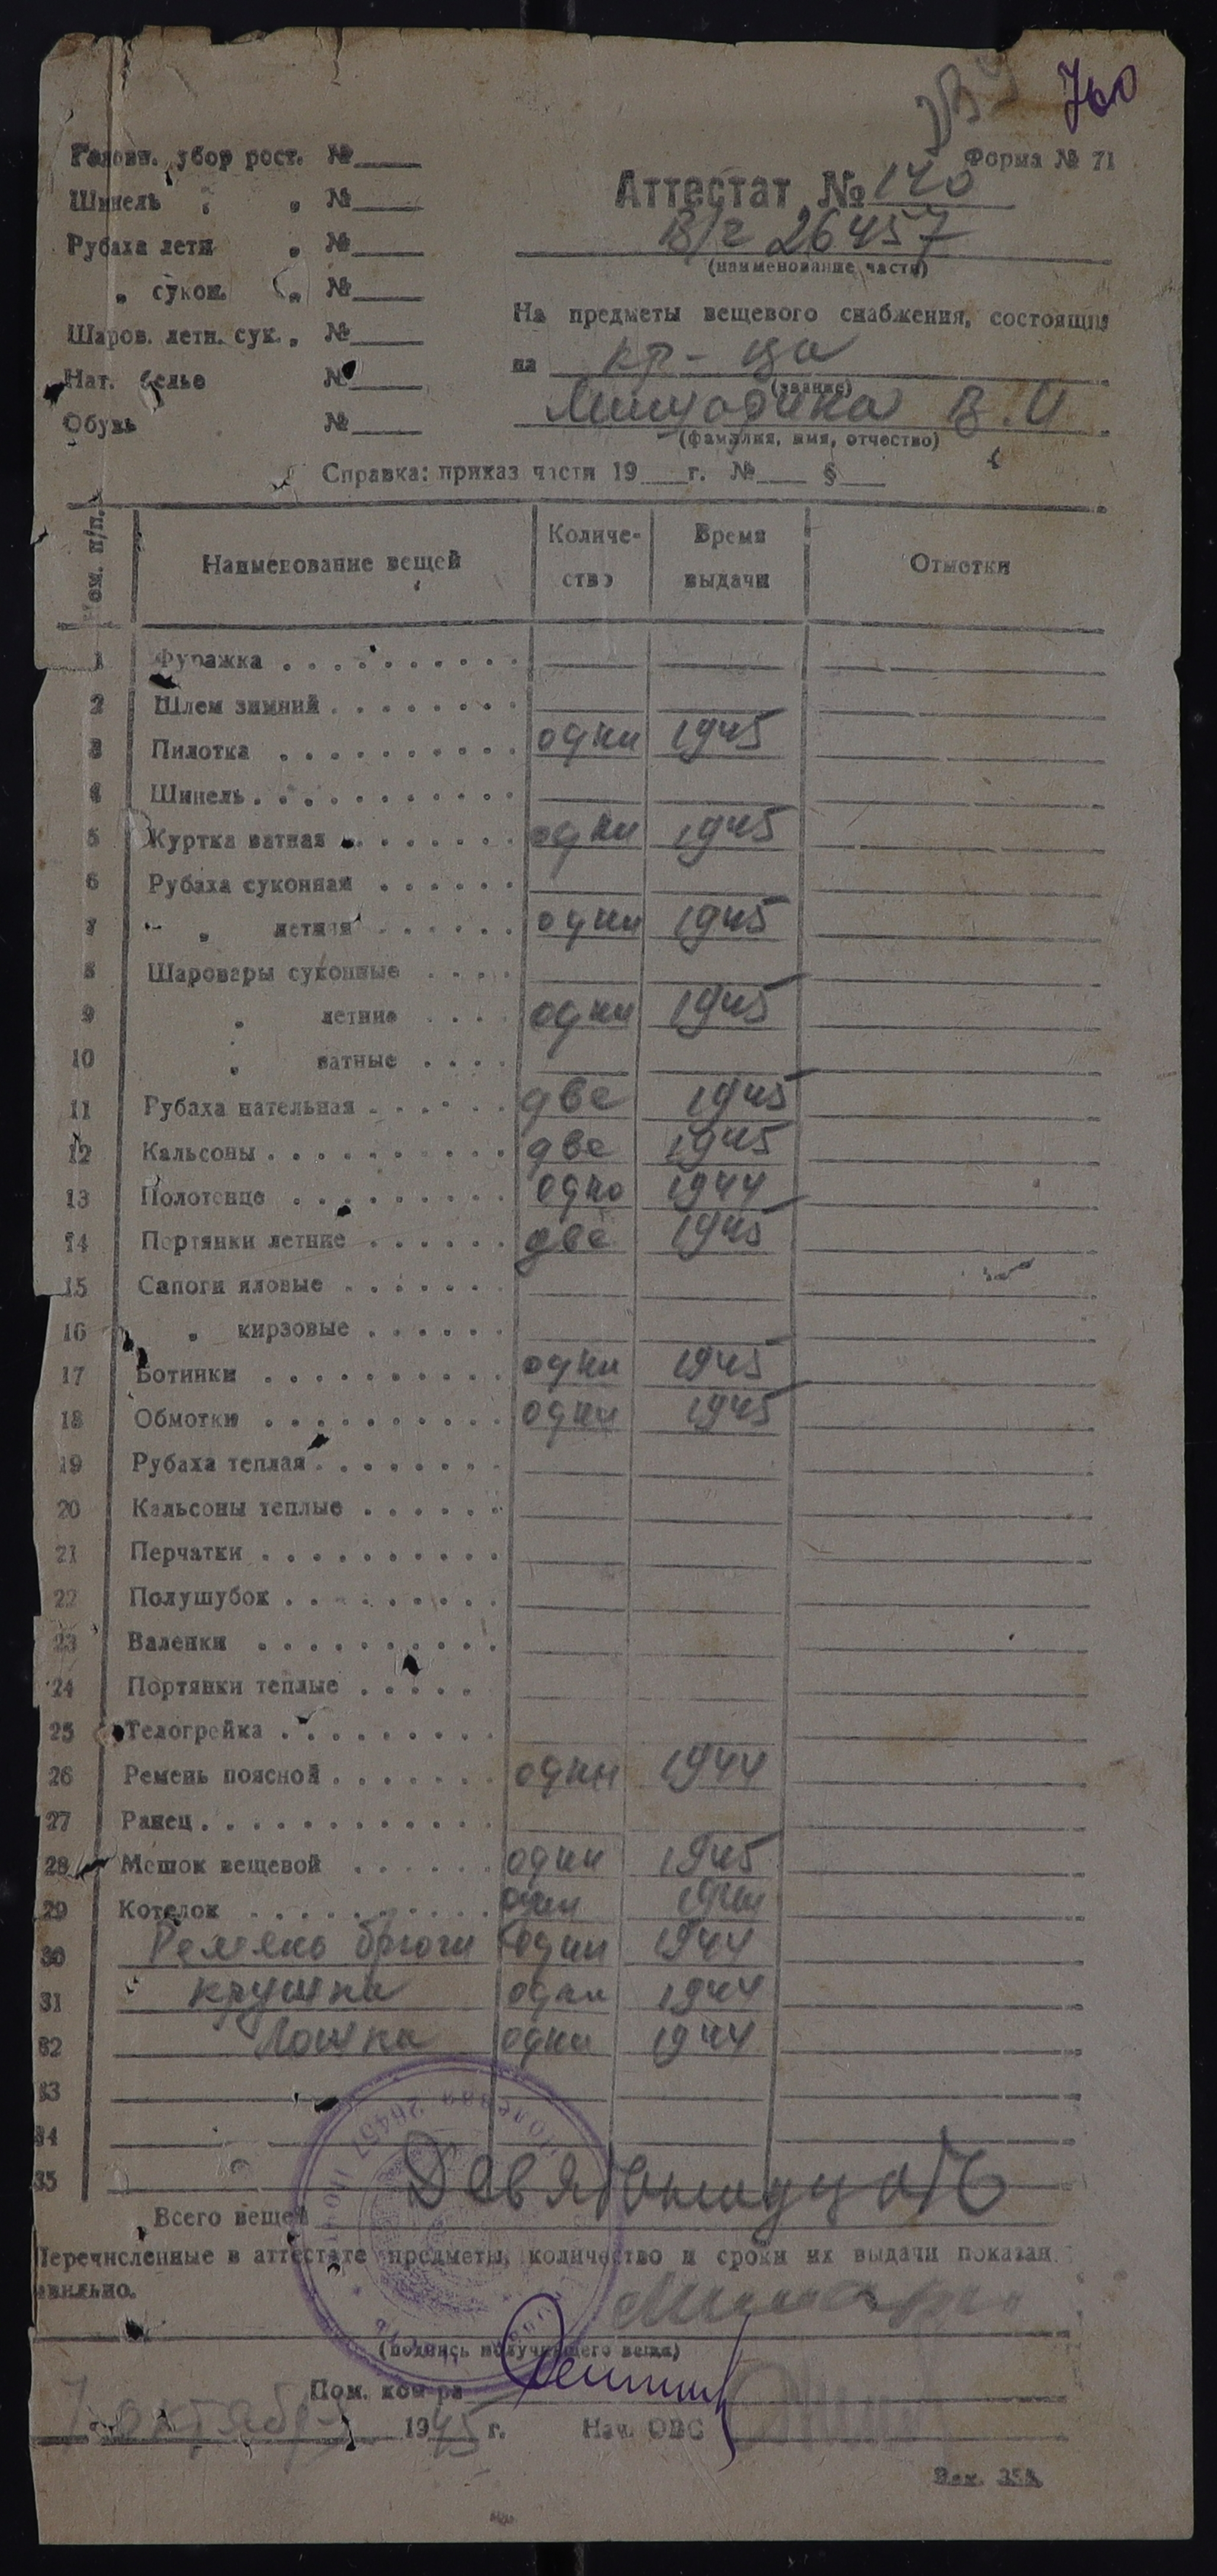 760
Форма № 71
Головн. убор рост. №
Шинель „ „ №
Рубаха летн „ №
„ сукон. „ №
Шаров. летн. сук. „ №
Нат. белье №
Обувь №
Аттестат № 140
В/ч 26457
(наименование части)
На предметы вещевого снабжения, состоящие
на кр-ца
(звание)
В. И
(фамилия, имя, отчество)
Справка: приказ части 19 г. № §
Ном. п/п. Наименование вещей Количество Время выдачи Отметки
1 Фуражка
2 Шлем зимний
3 Пилотка одни 1945
4 Шинель
5 Куртка ватная одни 1945
6 Рубаха суконная
7 „ летняя одни 1945
8 Шаровары суконные
9 „ летние одни 1945
10 „ ватные
11 Рубаха нательная две 1945
12 Кальсоны две 1945
13 Полотенце одно 1944
14 Портянки летние две 1945
15 Сапоги яловые
16 „ кирзовые
17 Ботинки одни 1945
18 Обмотки одни 1945
19 Рубаха теплая
20 Кальсоны теплые
21 Перчатки
22 Полушубок
23 Валенки
24 Портянки теплые
25 Телогрейка
26 Ремень поясной один 1944
27 Ранец
28 Мешок вещевой один 1945
29 Котелок один 1944
30 Ремень брючн один 1944
31 крушка одна 1944
32 Лошка одна 1944
33
34
35
Всего вещей Девятьнадцать
Перечисленные в аттестате предметы, количество и сроки их выдачи показан
авильно.
(подпись получившего вещи)
Пом. ком-ра
7 октября 1945 г. Нач. ОВС
Зак. 358